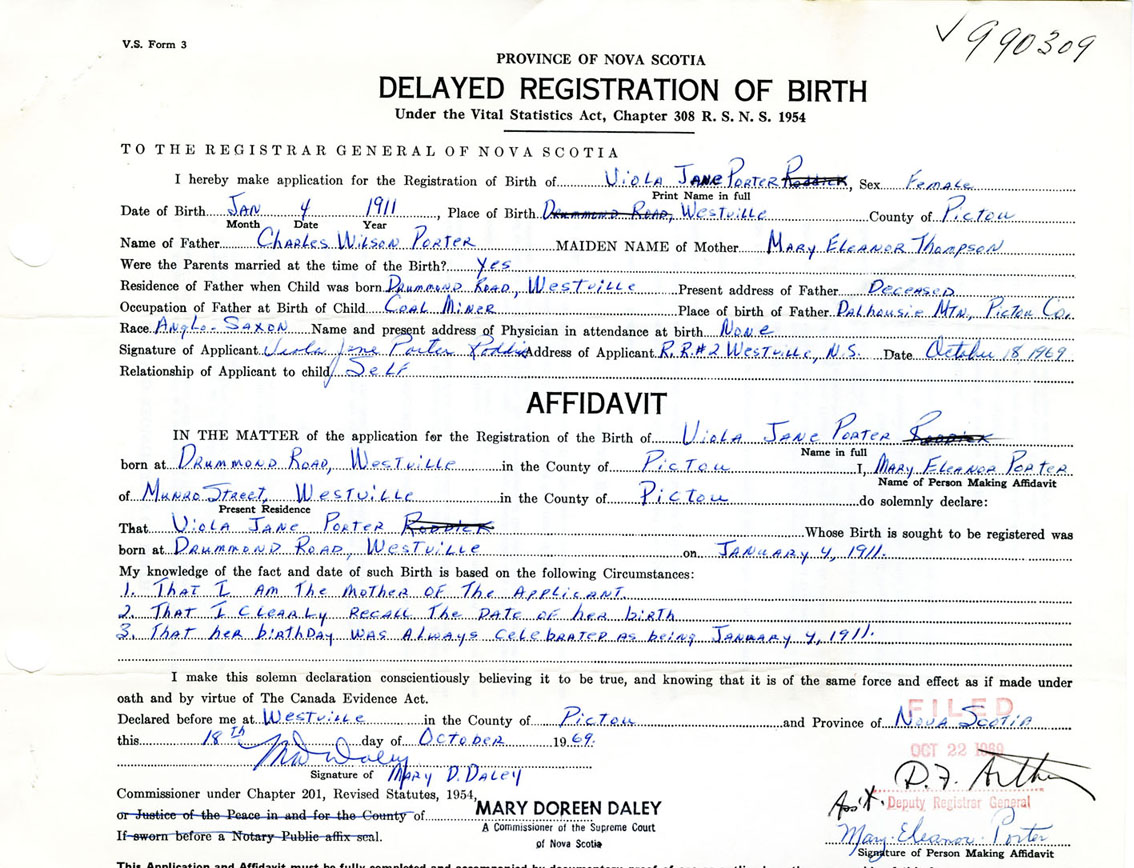 V.S. Form 3
✓990309
PROVINCE OF NOVA SCOTIA
DELAYED REGISTRATION OF BIRTH
Under the Vital Statistics Act, Chapter 308 R. S. N. S. 1954
TO THE REGISTRAR GENERAL OF NOVA SCOTIA
I hereby make application for the Registration of Birth of Viola Jane Porter Roddick, Sex Female
Print Name in full
Date of Birth Jan 4 1911, Place of Birth Drummond Road, Westville County of Pictou
Month Date Year
Name of Father Charles Wilson Porter MAIDEN NAME of Mother Mary Eleanor Thompson
Were the Parents married at the time of the Birth? Yes
Residence of Father when Child was born Drummond Road, Westville Present address of Father Deceased
Occupation of Father at Birth of Child Coal Miner Place of birth of Father Dalhousie Mtn, Pictou Co.
Race Anglo-Saxon Name and present address of Physician in attendance at birth None
Signature of Applicant Viola Jane Porter Roddick Address of Applicant R.R.#2 Westville, N.S. Date October 18 1969
Relationship of Applicant to child Self
AFFIDAVIT
IN THE MATTER of the application for the Registration of the Birth of Viola Jane Porter Roddick
Name in full
born at Drummond Road, Westville in the County of Pictou I, Mary Eleanor Porter
Name of Person Making Affidavit
of Munro Street, Westville in the County of Pictou do solemnly declare:
Present Residence
That Viola Jane Porter Roddick Whose Birth is sought to be registered was
born at Drummond Road, Westville on January 4, 1911.
My knowledge of the fact and date of such Birth is based on the following Circumstances:
1. That I am the mother of the applicant
2. That I clearly recall the date of her birth
3. That her birthday was always celebrated as being January 4, 1911.
I make this solemn declaration conscientiously believing it to be true, and knowing that it is of the same force and effect as if made under
oath and by virtue of The Canada Evidence Act.
Declared before me at Westville in the County of Pictou and Province of Nova Scotia
FILED
this 18th day of October 1969.
OCT 22 1969
M D Daley
Signature of Mary D. Daley
Commissioner under Chapter 201, Revised Statutes, 1954,
or Justice of the Peace in and for the County of
If sworn before a Notary Public affix seal.
MARY DOREEN DALEY
A Commissioner of the Supreme Court
of Nova Scotia
Ass't. Deputy Registrar General
Mary Eleanor Porter
Signature of Person Making Affidavit
This Application and Affidavit must be fully completed and accompanied by documentary proof of